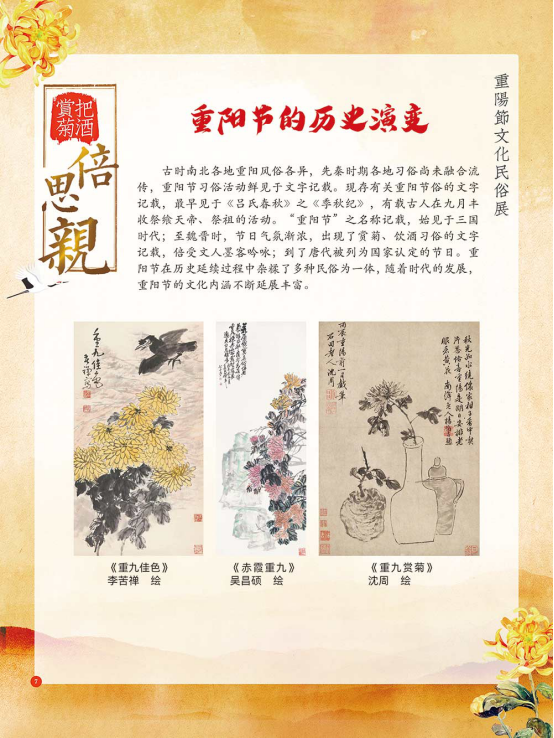 把酒
賞菊
倍思親
重陽節文化民俗展
重阳节的历史演变
古时南北各地重阳风俗各异，先秦时期各地习俗尚未融合流
传，重阳节习俗活动鲜见于文字记载。现存有关重阳节俗的文字
记载，最早见于《吕氏春秋》之《季秋纪》，有载古人在九月丰
收祭飨天帝、祭祖的活动。“重阳节”之名称记载，始见于三国
时代；至魏晋时，节日气氛渐浓，出现了赏菊、饮酒习俗的文字
记载，倍受文人墨客吟咏；到了唐代被列为国家认定的节日。重
阳节在历史延续过程中杂糅了多种民俗为一体，随着时代的发展，
重阳节的文化内涵不断延展丰富。
石田老人沈周
《重九佳色》
李苦禅 绘
《赤霞重九》
吴昌硕 绘
《重九赏菊》
沈周 绘
7